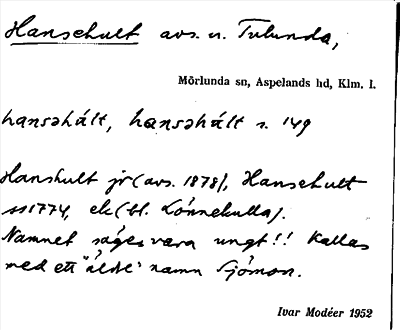 Hansehult avs. u. Tulunda,
Mörlunda sn, Aspelands hd, Klm. l.
hansəhált, hansəhált s. 149
Hanshult jr (avs. 1878), Hansehult
ss 1774, ek (bl. Lönnekulla).
Namnet säges vara ungt!! Kallas
med ett "äldre" namn Sjömon.
Ivar Modéer 1952